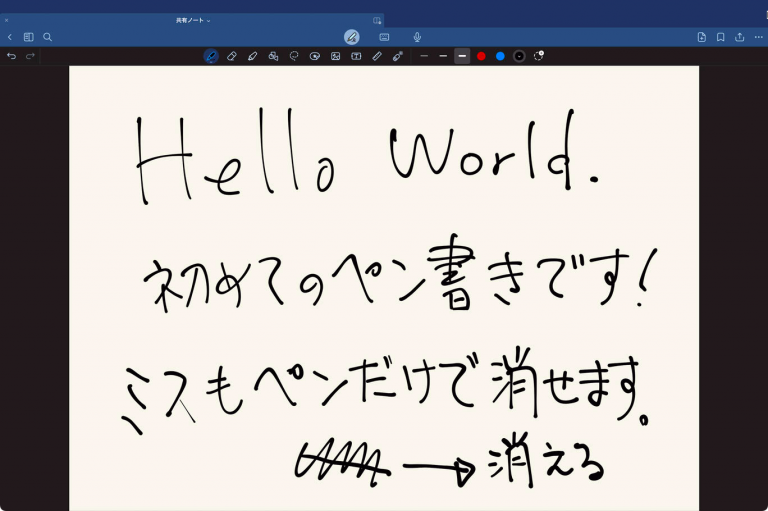 共有ノート
Hello World.
初めてのペン書きです!
ミスもペンだけで消せます。
消える